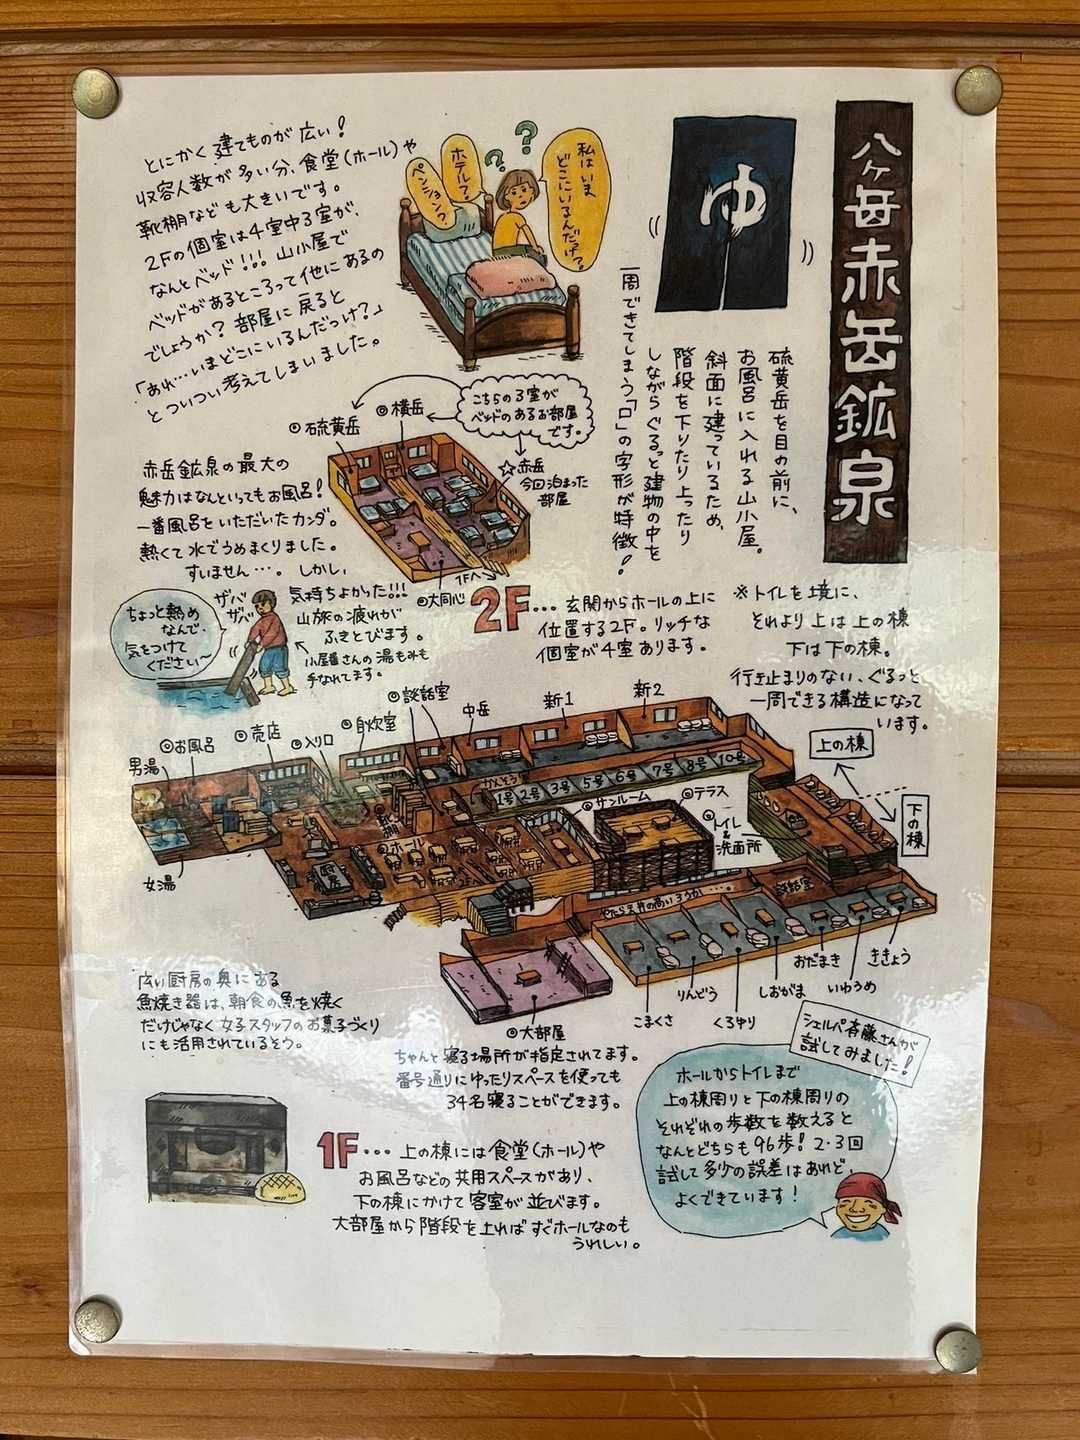 八ヶ岳赤岳鉱泉
ゆ
硫黄岳を目の前に、
お風呂に入れる山小屋。
斜面に建っているため、
階段を下りたり上ったり
しながらぐるっと建物の中を
一周できてしまう「ロ」の字形が特徴！
とにかく建てものが広い！
収容人数が多い分、食堂(ホール)や
靴棚なども大きいです。
2Fの個室は4室中3室が、
なんとベッド!!! 山小屋で
ベッドがあるところって他にあるの
でしょうか？部屋に戻ると
「あれ…いまどこにいるんだっけ？」
とついつい考えてしまいました。
私はいま
どこにいるんだっけ？
ホテル？
ペンション？
? ?
こちらの3室が
ベッドのあるお部屋
です。
硫黄岳
横岳
☆赤岳
今回泊まった
部屋
大同心
1Fへ
赤岳鉱泉の最大の
魅力はなんといってもお風呂！
一番風呂をいただいたカンダ。
熱くて水でうめまくりました。
すいません…。しかし、
気持ちよかった!!!
山旅の疲れが
ふきとびます。
小屋番さんの湯もみも
手なれてます。
ザバ
ザバ
ちょっと熱め
なんで、
気をつけて
ください〜
2F… 玄関からホールの上に
位置する2F。リッチな
個室が4室あります。
※トイレを境に、
それより上は上の棟
下は下の棟。
行き止まりのない、ぐるっと
一周できる構造になって
います。
上の棟
下の棟
男湯
お風呂
売店
入り口
自炊室
談話室
中岳
新1
新2
女湯
かんそう室
1号 2号 3号 5号 6号 7号 8号 10号
靴棚
ホール
厨房
2Fへ
サンルーム
テラス
トイレ
&
洗面所
談話室
やたら天井の高いろうか…。
大部屋
こまくさ
りんどう
くろゆり
しおがま
おだまき
いわうめ
ききょう
ちゃんと寝る場所が指定されてます。
番号通りにゆったりスペースを使っても
34名寝ることができます。
広い厨房の奥にある
魚焼き器は、朝食の魚を焼く
だけじゃなく女子スタッフのお菓子づくり
にも活用されているそう。
1F… 上の棟には食堂(ホール)や
お風呂などの共用スペースがあり、
下の棟にかけて客室が並びます。
大部屋から階段を上ればすぐホールなのも
うれしい。
シェルパ斉藤さんが
試してみました！
ホールからトイレまで
上の棟周りと下の棟周りの
それぞれの歩数を数えると
なんとどちらも96歩！2・3回
試して多少の誤差はあれど、
よくできています！